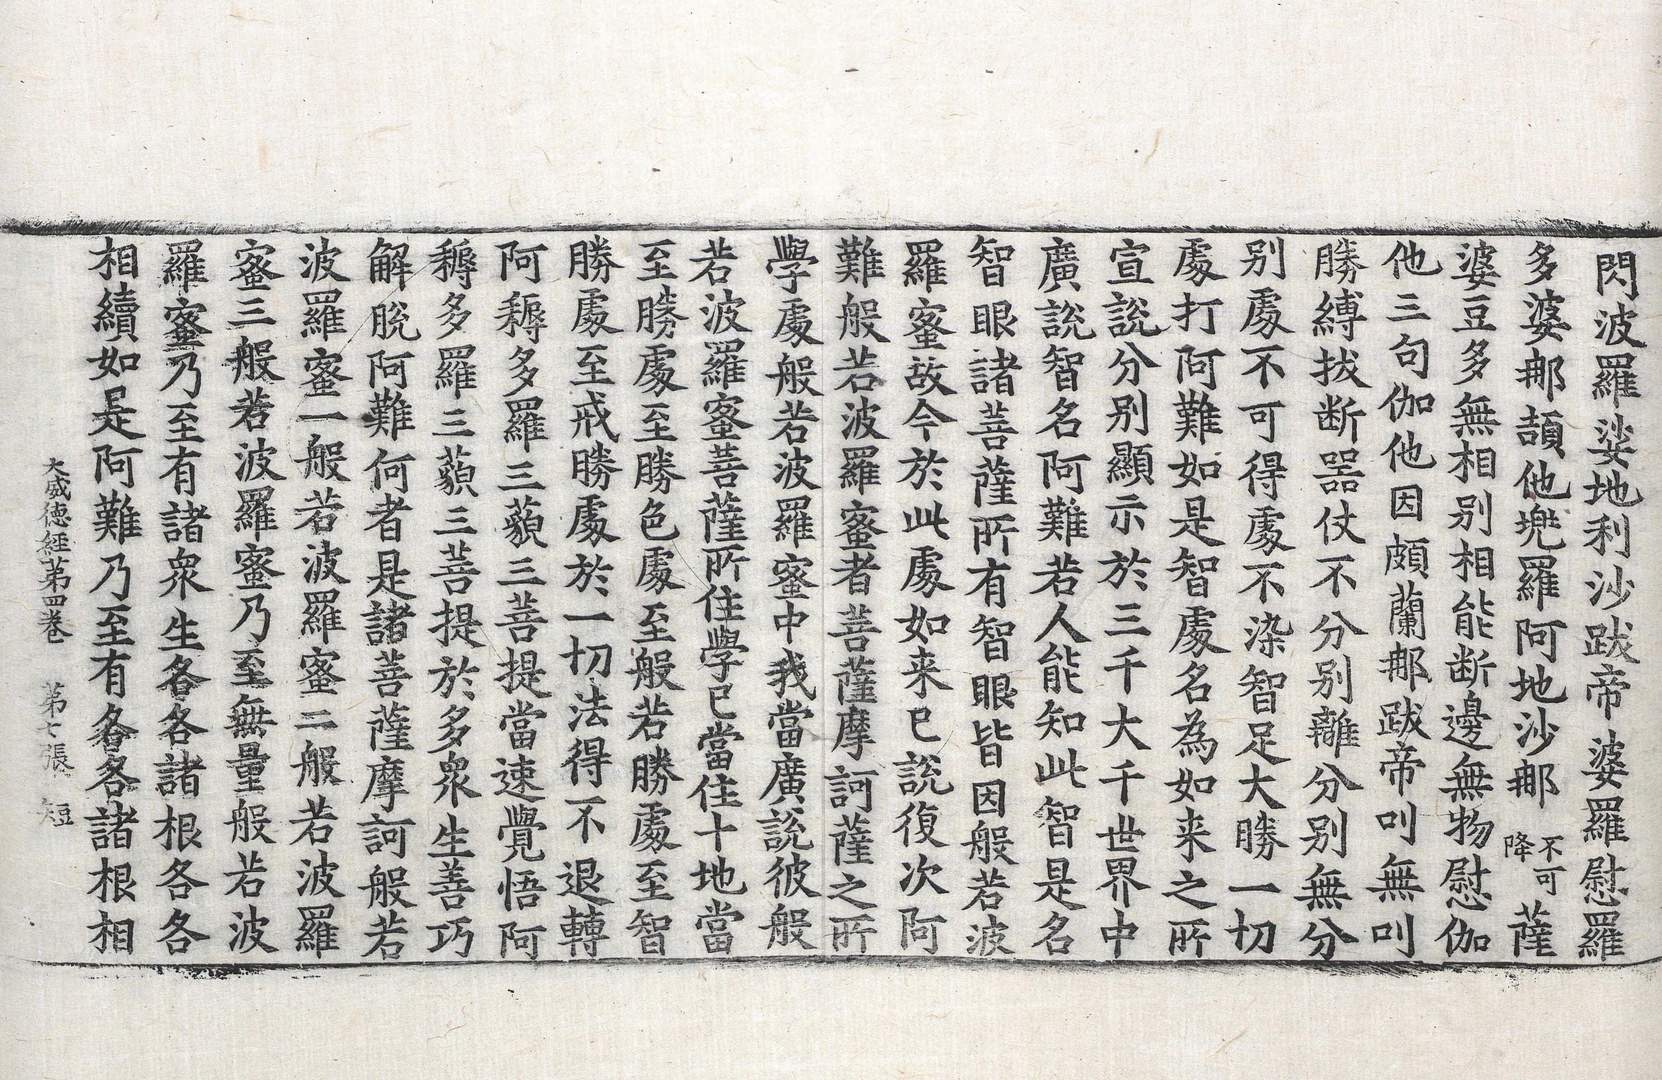 閃波羅娑地利沙跋帝婆羅慰羅
多婆那頡他兠羅阿地沙那不可降薩
婆豆多無相別相能断邊無物慰伽
他三句伽他因頗蘭那跋帝叫無叫
勝縛拔断噐仗不分別離分別無分
別處不可得處不染智足大勝一切
處打阿難如是智處名為如来之所
宣說分別顯示於三千大千世界中
廣說智名阿難若人能知此智是名
智眼諸菩薩所有智眼皆因般若波
羅蜜故今於此處如来已說復次阿
難般若波羅蜜者菩薩摩訶薩之所
學處般若波羅蜜中我當廣說彼般
若波羅蜜菩薩所住學已當住十地當
至勝處至勝色處至般若勝處至智
勝處至戒勝處於一切法得不退轉
阿耨多羅三藐三菩提當速覺悟阿
耨多羅三藐三菩提於多衆生善巧
解脫阿難何者是諸菩薩摩訶般若
波羅蜜一般若波羅蜜二般若波羅
蜜三般若波羅蜜乃至無量般若波
羅蜜乃至有諸衆生各各諸根各各
相續如是阿難乃至有各各諸根相
大威徳經第四卷　第七張　短